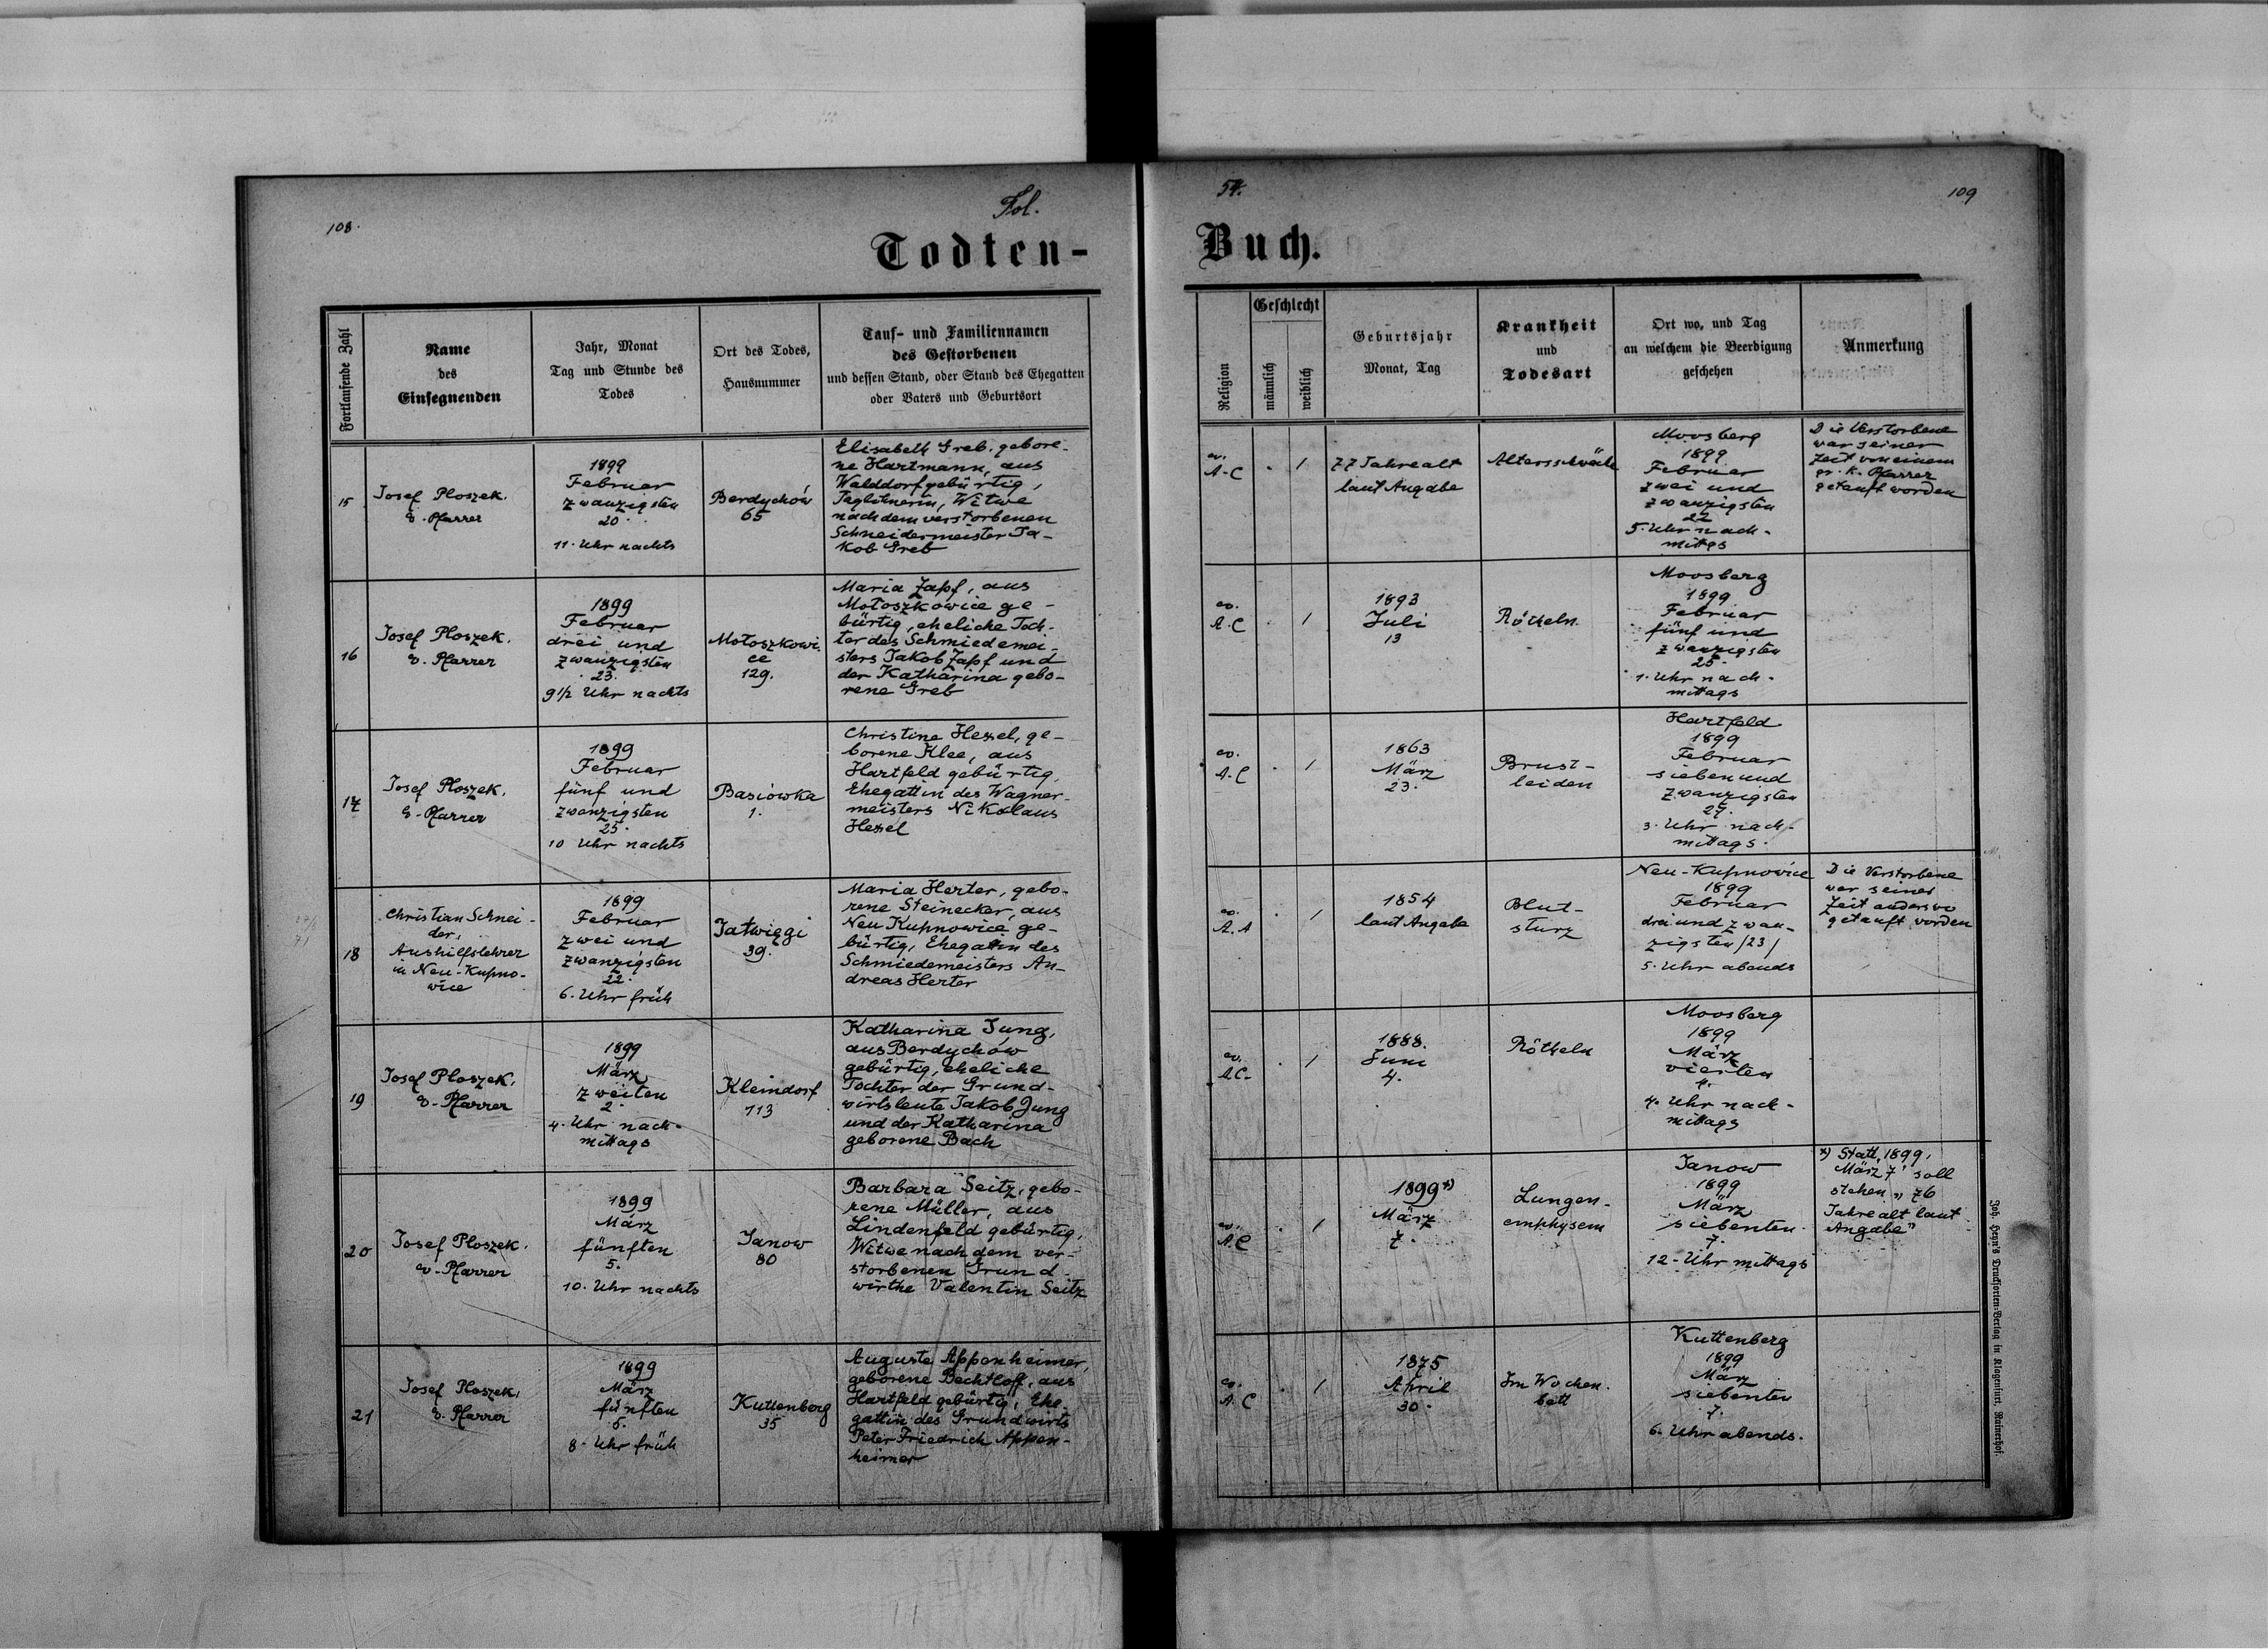 108.
Fol.
54.
109
Todten-
Buch.
Fortlaufende Zahl
Name
des
Einsegnenden
Jahr, Monat
Tag und Stunde des
Todes
Ort des Todes,
Hausnummer
Tauf- und Familiennamen
des Gestorbenen
und dessen Stand, oder Stand des Ehegatten
oder Vaters und Geburtsort
Religion
Geschlecht
männlich
weiblich
Geburtsjahr
Monat, Tag
Krankheit
und
Todesart
Ort wo, und Tag
an welchem die Beerdigung
geschehen
Anmerkung
15
Josef Ploszek.
e. Pfarrer
1899
Februar
zwanzigsten
20.
11. Uhr nachts
Berdychów
65
Elisabeth Greb, gebore-
ne Hartmann, aus
Walddorf gebürtig,
Taglöhnerin, Witwe
nach dem verstorbenen
Schneidermeister Ja-
kob Greb
ev.
A.C
. 1
77 Jahre alt
laut Angabe
Altersschwäche
Moosberg
1899
Februar
zwei und
zwanzigsten
22
5. Uhr nach-
mittgs
Die Verstorbene
war seiner
Zeit von einem
gr. k. Pfarrer
getauft worden
16
Josef Ploszek.
e. Pfarrer
1899
Februar
drei und
zwanzigsten
23.
9 1/2 Uhr nachts
Mołoszkowi-
ce
129.
Maria Zapf, aus
Mołoszkowice ge-
bürtig, eheliche Toch-
ter des Schmiedemei-
sters Jakob Zapf und
der Katharina gebo-
rene Greb
ev.
A.C
. 1
1893
Juli
13
Rötheln
Moosberg
1899
Februar
fünf und
zwanzigsten
25.
1. Uhr nach-
mittags
17
Josef Ploszek.
e. Pfarrer
1899
Februar
fünf und
zwanzigsten
25.
10 Uhr nachts
Basiówka
1.
Christine Hexel, ge-
borene Klee, aus
Hartfeld gebürtig,
Ehegattin des Wagner-
meisters Nikolaus
Hexel
ev.
A.C
. 1
1863
März
23.
Brust-
leiden
Hartfeld
1899
Februar
sieben und
zwanzigsten
27.
3. Uhr nach-
mittags.
18
Christian Schnei-
der,
Aushilfslehrer
in Neu-Kupno-
wice
1899
Februar
zwei und
zwanzigsten
22.
6. Uhr früh
Jatwięgi
39.
Maria Herter, gebo-
rene Steinecker, aus
Neu Kupnowice ge-
bürtig, Ehegattin des
Schmiedemeisters An-
dreas Herter
ev.
A.A
. 1
1854
laut Angabe
Blut-
sturz
Neu-Kupnowice
1899
Februar
drei und zwan-
zigsten /23/
5. Uhr abends
Die Verstorbene
war seiner
Zeit anderswo
getauft worden
19
Josef Ploszek.
e. Pfarrer
1899
März
zweiten
2.
4. Uhr nach-
mittags
Kleindorf
113
Katharina Jung,
aus Berdychów
gebürtig, eheliche
Tochter der Grund-
wirtsleute Jakob Jung
und der Katharina
geborene Bach
ev.
A.C.
. 1
1888.
Juni
4.
Rötheln
Moosberg
1899
März
vierten
4.
4. Uhr nach-
mittags
20
Josef Ploszek.
e. Pfarrer
1899
März
fünften
5.
10. Uhr nachts
Janow
80
Barbara Seitz, gebo-
rene Müller, aus
Lindenfeld gebürtig,
Witwe nach dem ver-
storbenen Grund-
wirthe Valentin Seitz
ev.
A.C
. 1
1899 *)
März
7.
Lungen-
emphysem
Janow
1899
März
siebenten
7.
12. Uhr mittags
*) Statt „1899,
März 7" soll
stehen „76
Jahre alt laut
Angabe"
21
Josef Ploszek.
e. Pfarrer
1899
März
fünften
5.
8. Uhr früh
Kuttenberg
35
Auguste Appenheimer,
geborene Bechtloff, aus
Hartfeld gebürtig, Ehe-
gattin des Grundwirts
Peter Friedrich Appen-
heimer
ev.
A.C
. 1
1875
April
30.
Im Wochen-
bett
Kuttenberg
1899
März
siebenten
7.
6. Uhr abends.
Joh. Heyn's Drucksorten-Verlag in Klagenfurt, Rainerhof.